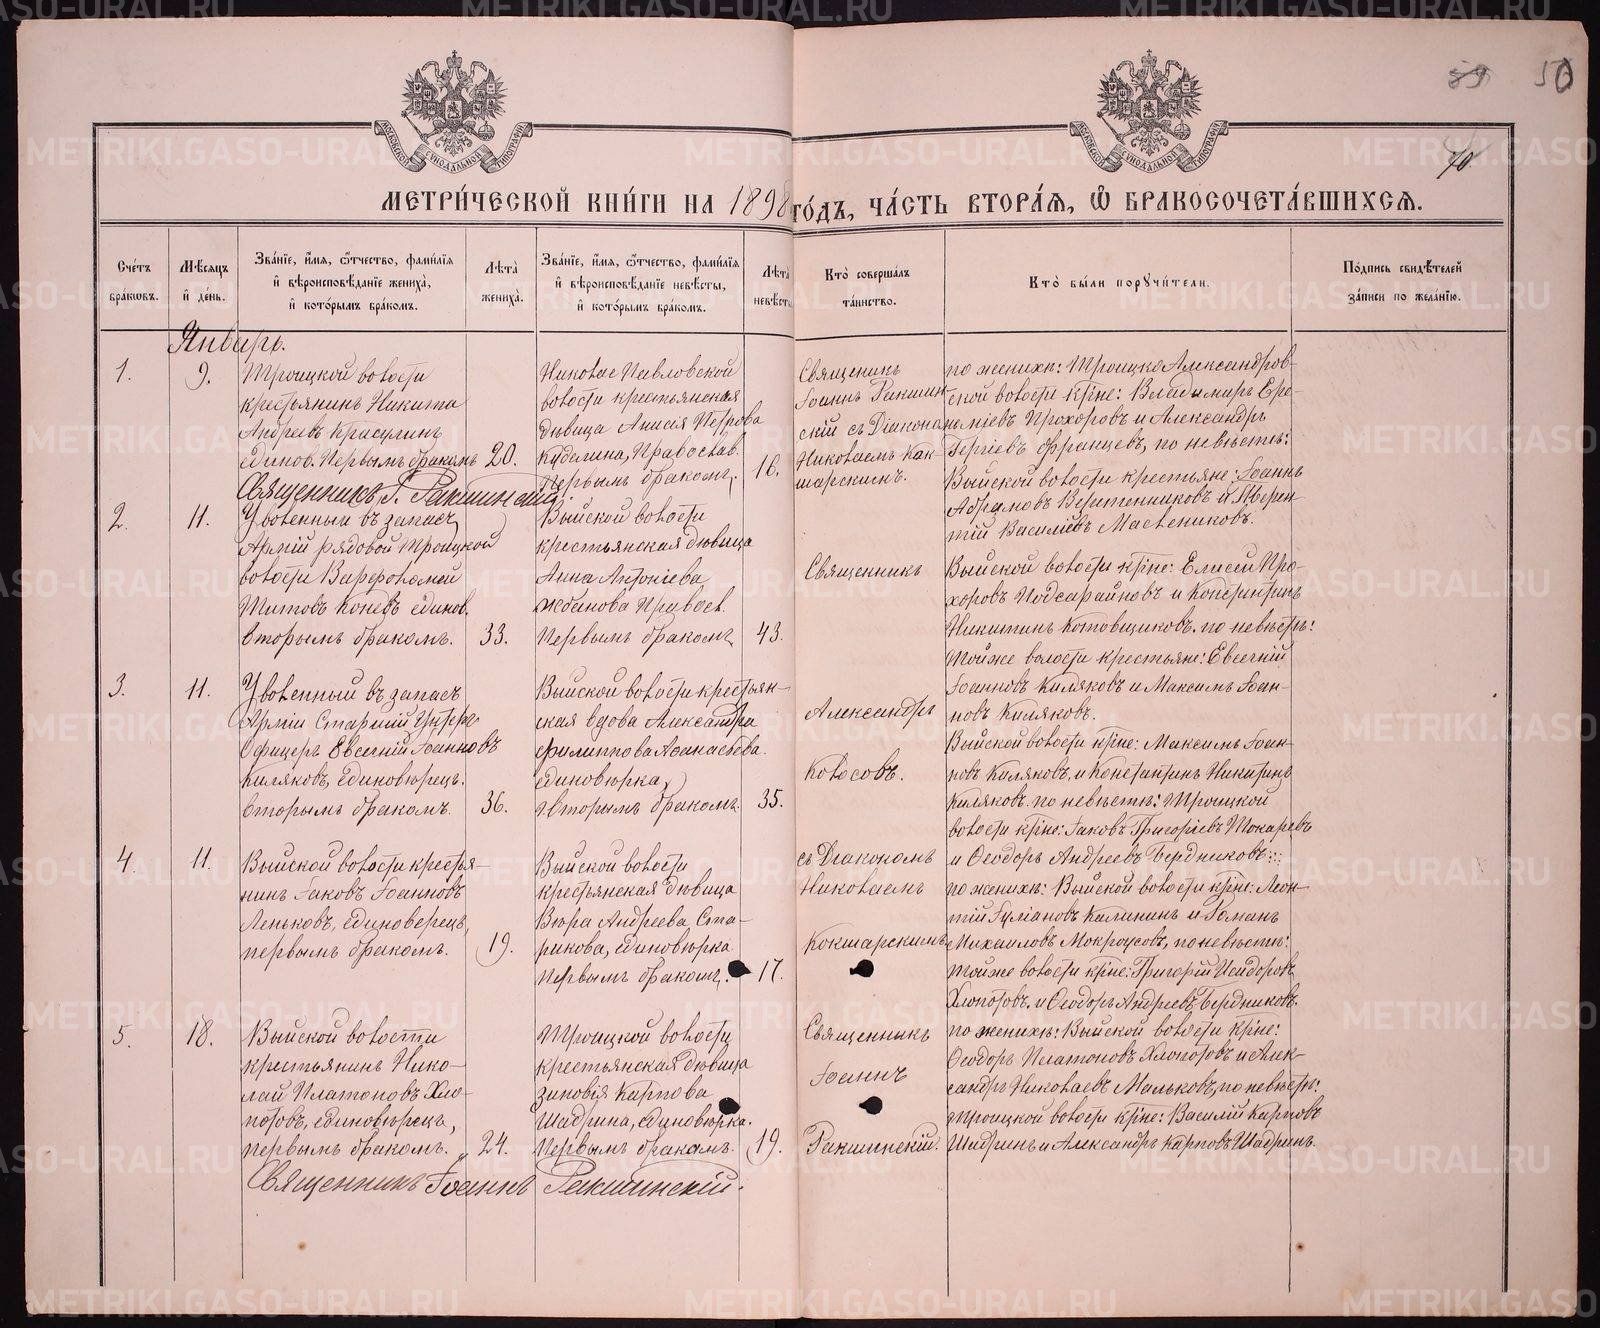 59 50
70
МОСКОВСКОЙ СУНОДАЛЬНОЙ ТИПОГРАФІИ
МОСКОВСКОЙ СУНОДАЛЬНОЙ ТИПОГРАФІИ
МЕТРИ́ЧЕСКОЙ КНИ́ГИ НА 1898 ГО́ДЪ, ЧА́СТЬ ВТОРА́Я, Ѽ БРАКОСОЧЕТА́ВШИХСЯ.
Сче́тъ
бра́кωвъ.
Мѣ́сяцъ
и҆ де́нь.
Зва́нїе, и҆́мя, ѻ҆́тчество, фами́лїя
и҆ вѣроисповѣ́данїе жениха̀,
и҆ кото́рымъ бра́комъ.
Лѣ́та
жениха̀.
Зва́нїе, и҆́мя, ѻ҆́тчество, фами́лїя
и҆ вѣроисповѣ́данїе невѣ́сты,
и҆ кото́рымъ бра́комъ.
Лѣ́та
невѣ́сты
Кто̀ соверша́лъ
та́инство.
Кто̀ бы́ли порꙋчи́тели.
По́дпись свидѣ́телей
за́писи по жела́нїю.
Январь.
1.
9.
Троицкой волости
крестьянинъ Никита
Андреевъ Красулинъ
единов. Первымъ бракомъ
20.
Николае Павловской
волости крестьянская
дѣвица Анисія Петрова
Куделина, Православ.
Первымъ бракомъ.
16.
Священникъ
Іоаннъ Ракшин
скій съ Діакона
Николаемъ Кок
шарскимъ.
по женихѣ: Троицко Александров-
ской волости кр҃не: Владимиръ Ере-
мѣевъ Прохоровъ и Александръ
Сергѣевъ Францевъ, по невѣстѣ:
Выйской волости крестьяне: Іоаннъ
Абрамовъ Веретенниковъ и Терен-
тій Василіевъ Масленниковъ.
Священникъ І. Ракшинскій
2.
11.
Уволенный въ запасъ
Арміи рядовой Троицкой
волости Варфоломей
Титовъ Коневъ единов.
вторымъ бракомъ.
33.
Выйской волости
крестьянская дѣвица
Анна Антоніева
Жбанова Правосл.
Первымъ бракомъ,
43.
Священникъ
Выйской волости кр҃не: Елисей Про-
хоровъ Подсарайновъ и Константинъ
Никитинъ Котовщиковъ. по невѣстѣ:
Тойже волости крестьяне: Евгеній
Іоанновъ Киляковъ и Максимъ Іоан-
новъ Киляковъ.
3.
11.
Уволенный въ запасъ
Арміи Старшій Унтеръ
Офицеръ Евгеній Іоанновъ
Киляковъ, единовѣрецъ.
вторымъ бракомъ.
36.
Выйской волости крестьян-
ская вдова Александра
Филиппова Аѳанасьева.
единовѣрка,
вторымъ бракомъ.
35.
Александръ
Колосовъ.
Выйской волости кр҃не: Максимъ Іоан-
новъ Киляковъ, и Константинъ Никитинъ
Киляковъ. по невѣстѣ: Троицкой
волости кр҃не: Іаковъ Григоріевъ Токаревъ
и Ѳеодоръ Андреевъ Бердниковъ.
4.
11.
Выйской волости крестья-
нинъ Іаковъ Іоанновъ
Леньковъ, единоверецъ,
первымъ бракомъ.
19.
Выйской волости
крестьянская дѣвица
Вѣра Андреева Ста-
рикова, единовѣрка
Первымъ бракомъ.
17.
съ Діакономъ
Николаемъ
Кокшарскимъ
по женихѣ: Выйской волости кр҃не: Леон-
тій Іуліановъ Калининъ и Романъ
Михаиловъ Мокроусовъ, по невѣстѣ:
тойже волости кр҃не: Григорій Исидоровъ
Хлопотовъ. и Ѳеодоръ Андреевъ Бердниковъ.
5.
18.
Выйской волости
крестьянинъ Нико-
лай Платоновъ Хло-
потовъ, единовѣрецъ,
первымъ бракомъ.
24.
Троицкой волости
крестьянская дѣвица
Зиновія Карпова
Шадрина, единовѣрка.
Первымъ бракомъ.
19.
Священникъ
Іоаннъ
Ракшинскій.
по женихѣ: Выйской волости кр҃не:
Ѳеодоръ Платоновъ Хлопотовъ и Алек-
сандръ Николаевъ Мальковъ, по невѣстѣ:
Троицкой волости кр҃не: Василій Карповъ
Шадринъ и Александръ Карповъ Шадринъ.
Священникъ Іоаннъ Ракшинскій.
METRIKI.GASO-URAL.RU